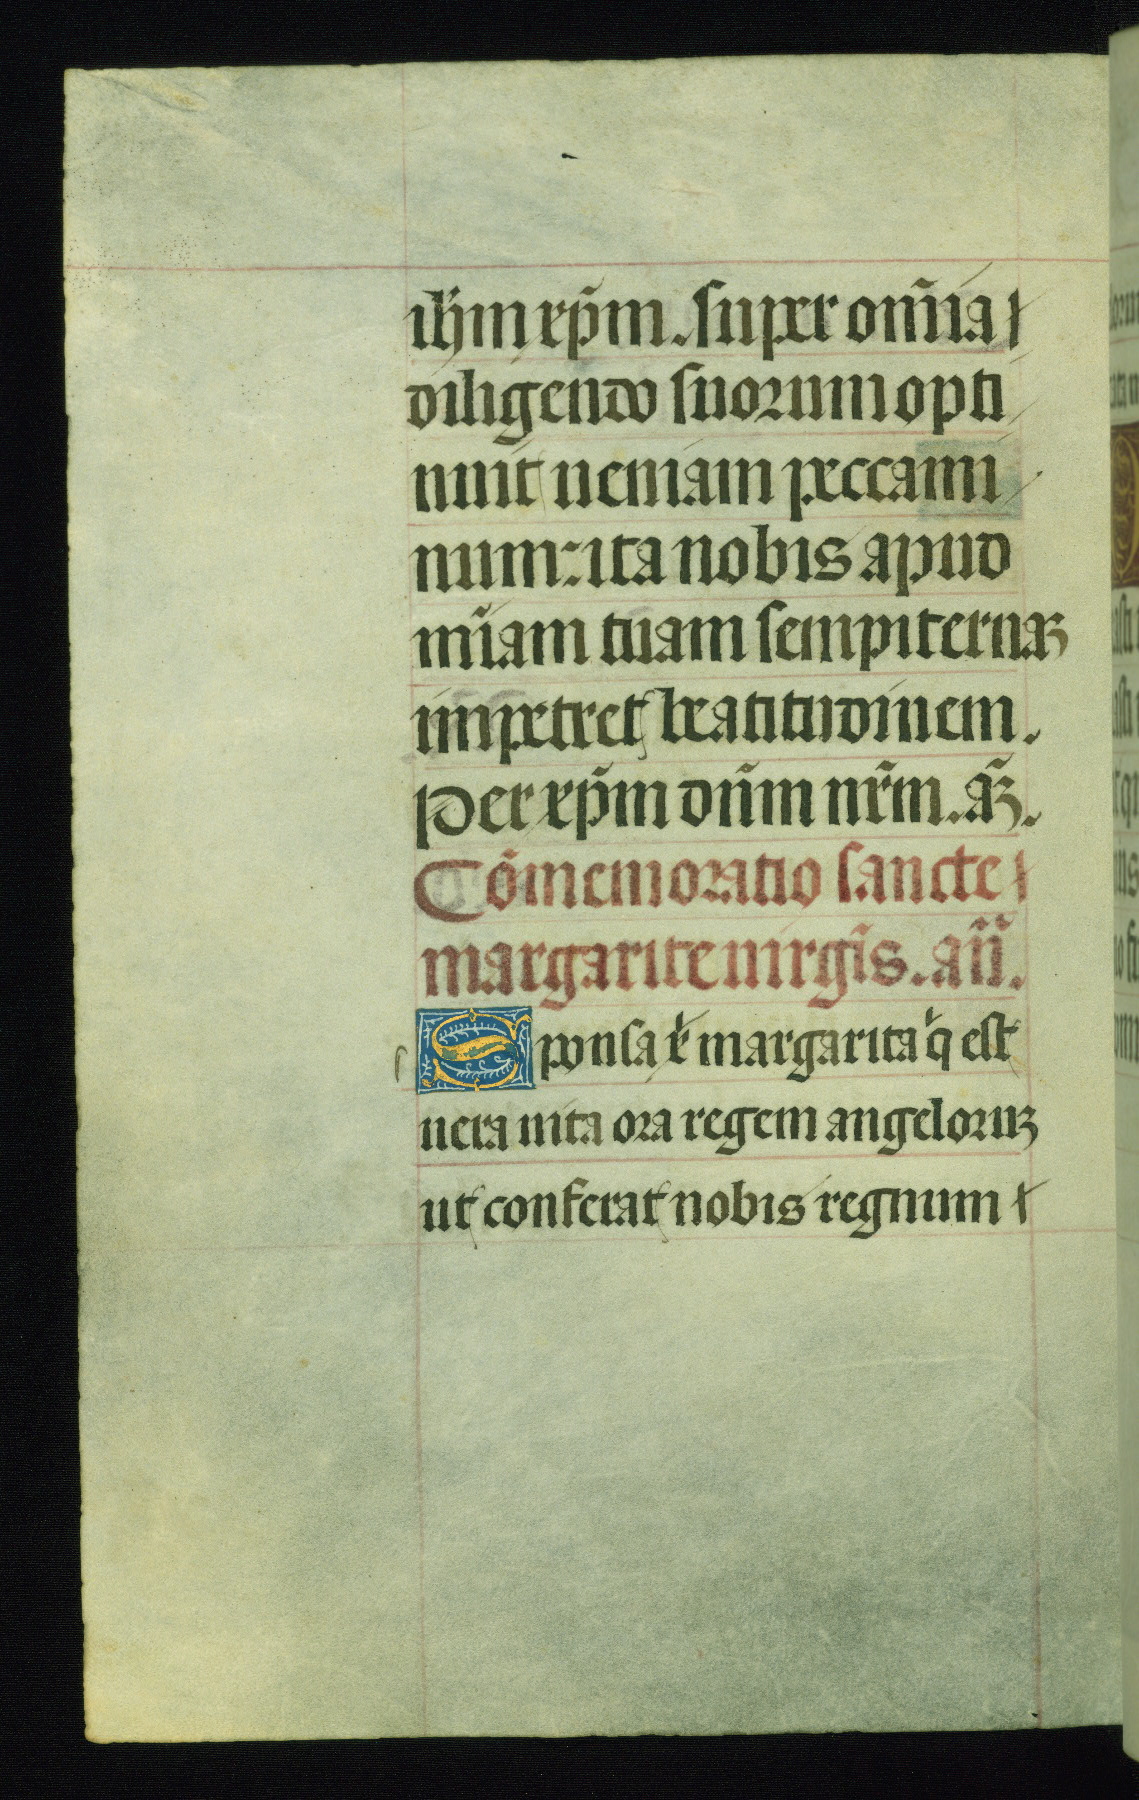 ihm̄ xp̄m. super om̄ia
diligendo suorum opti
nuit ueniam peccami
num: ita nobis apud
mīam tuam sempiternaꝫ
impetret beatitudinem.
Per xp̄m dūm nr̄m. aꝫ̄.
Cōmemoratio sancte
margarite uirgīs. añ.
Sponsa xp̄i margarita q̄ est
uera uita ora regem angeloruꝫ
ut conferat nobis regnum